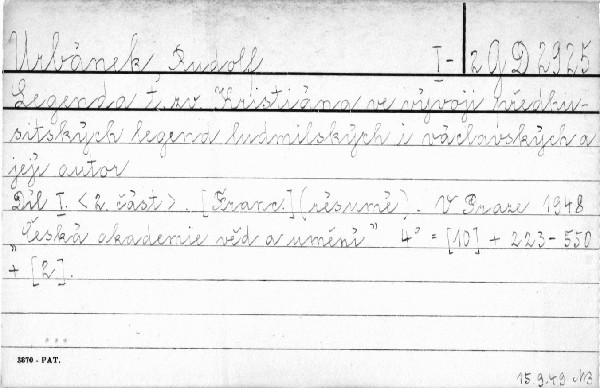 Urbánek Rudolf I- 2 G D 2925
Legenda t. zv. Kristiána ve vývoji předhu-
sitských legend ludmilských i václavských a
její autor
Díl I. <2. část>. [Franc.] (résumé). V Praze 1948
"Česká akademie věd a umění" 4° = [10] + 223-550
+ [2].
3870 - PAT.
15.9.49